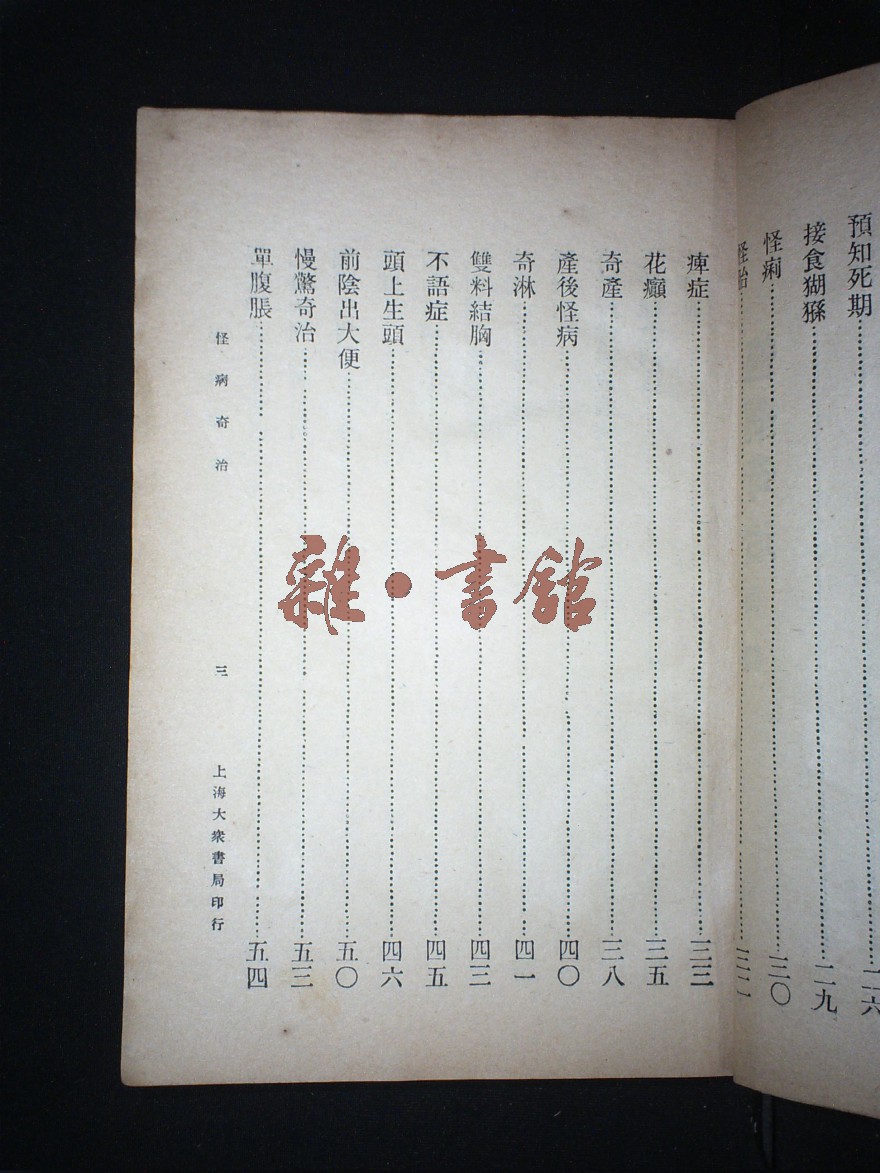 預知死期……二六
接食猢猻……二九
怪痢……三〇
怪胎……三二
痺症……三三
花癲……三五
奇產……三八
產後怪病……四〇
奇淋……四一
雙料結胸……四三
不語症……四五
頭上生頭……四六
前陰出大便……五〇
慢驚奇治……五三
單腹脹……五四
怪病奇治 三 上海大衆書局印行
雜·書館